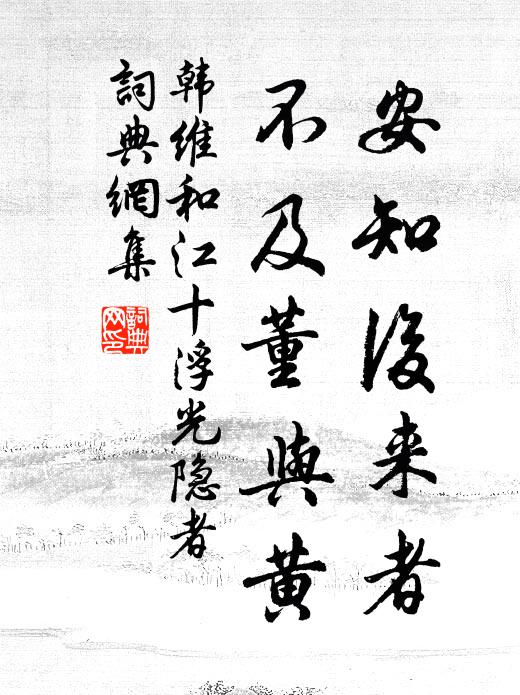 安知後来者
不及董與黄
韩維和江十浮光隐者
詞典網集
詞典
网印